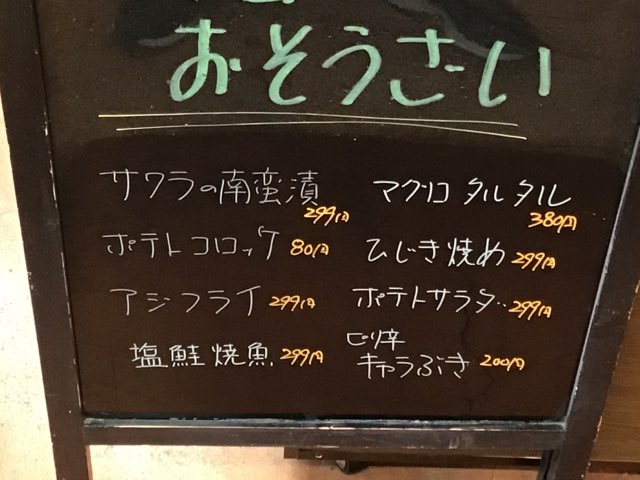 おそうさい
サワラの南蛮漬
299円
ポテトコロッケ 80円
アジフライ 299円
塩鮭焼魚 299円
マグロ タルタル
380円
ひじき焼め 299円
ポテトサラダ 299円
ピリ辛
キャラぶき 200円